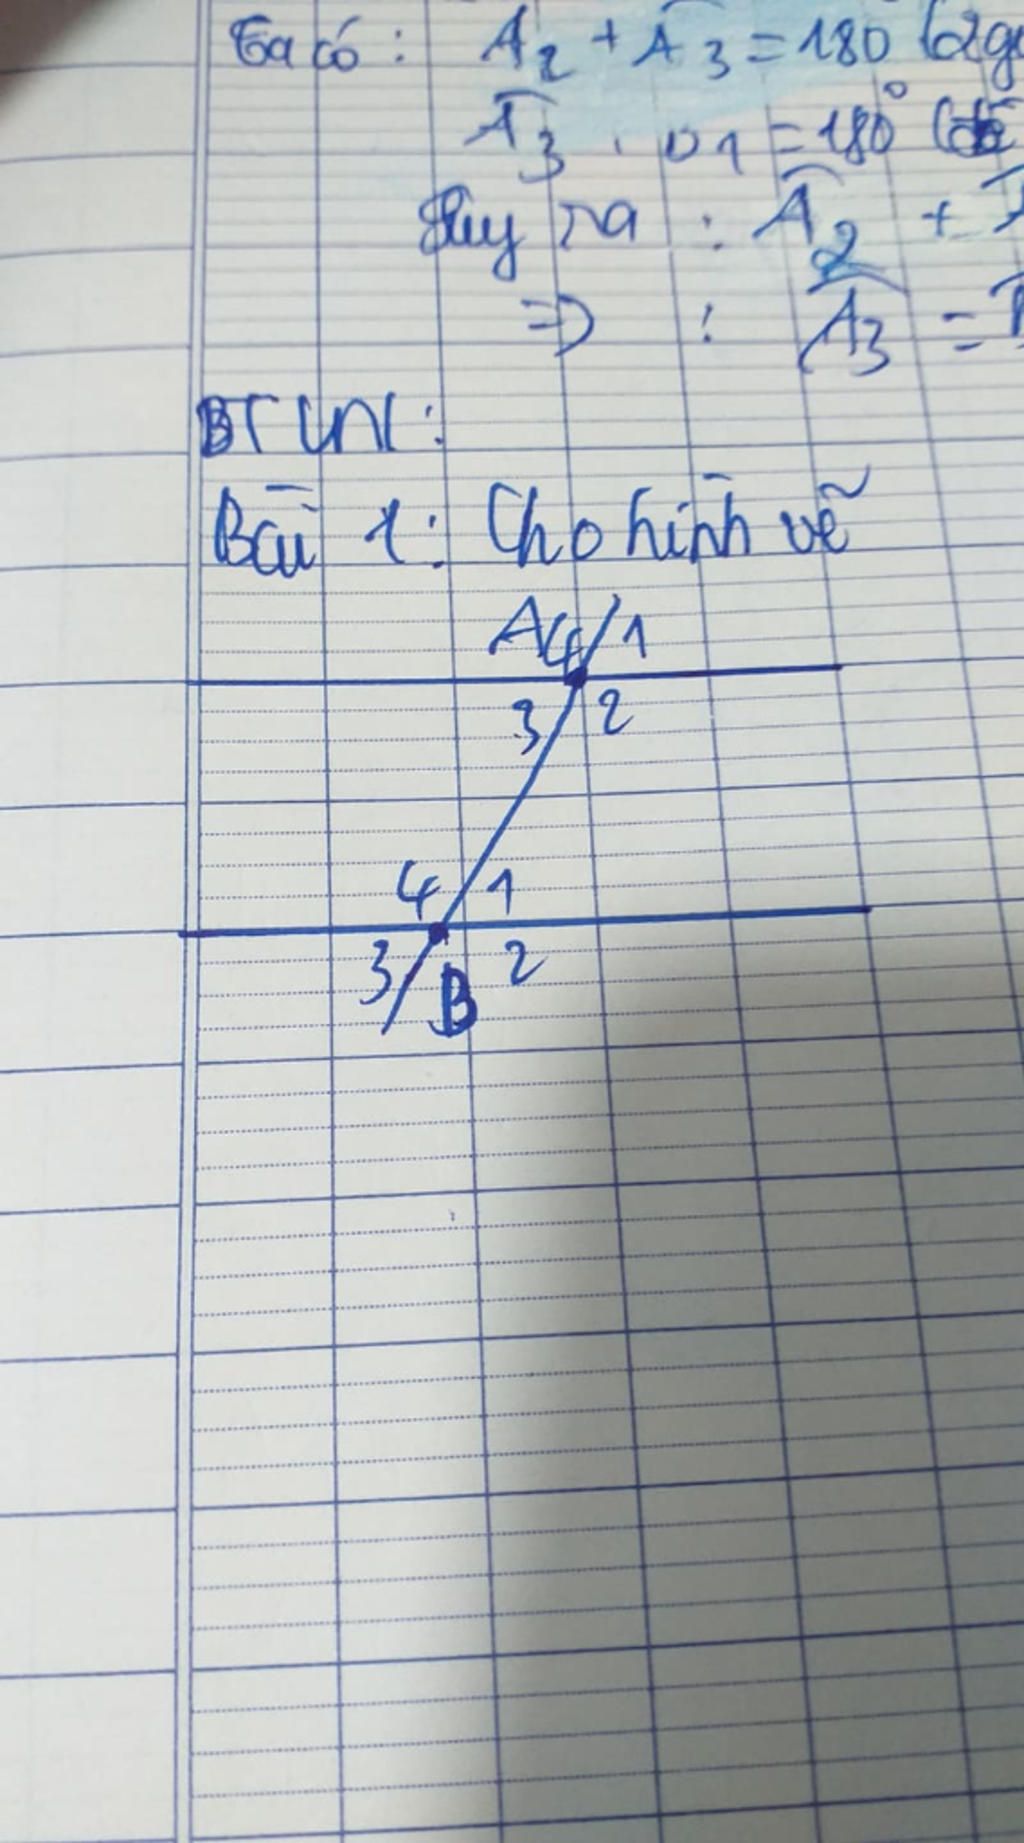 Ta có: A2 + A3 = 180° (2 gó
A3 . D1 = 180° (đề
Suy ra : A2 +
=> : A3 =
BTVN:
Bài 1: Cho hình vẽ
A 4 1
3 2
4 1
3 B 2